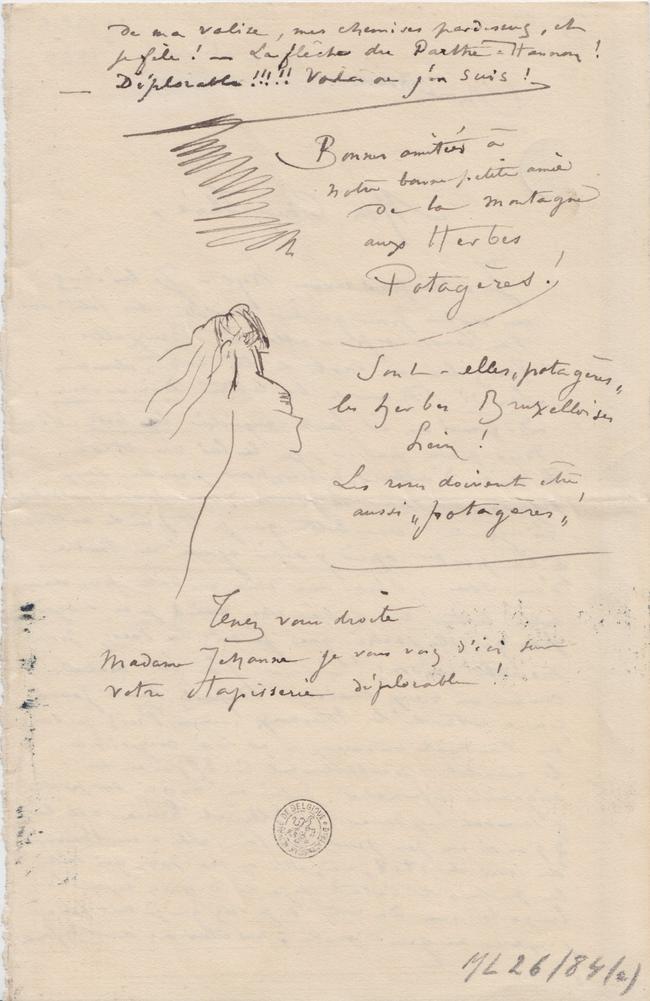 de ma valise, mes chemises pardessus, et
je file ! — La flèche du Parthe = Hannon !
— Déplorable !!!!! Voilà où j'en suis !
Bonnes amitiés à
notre bonne petite amie
de la Montagne
aux Herbes
Potagères !
Sont-elles „potagères„
les herbes Bruxelloises
hein !
Les roses doivent être
aussi „potagères„!
Tenez vous droite
Madame Jehanne je vous vois d'ici sur
votre tapisserie déplorable !
DE BELGIQUE
ML 26/84(a)